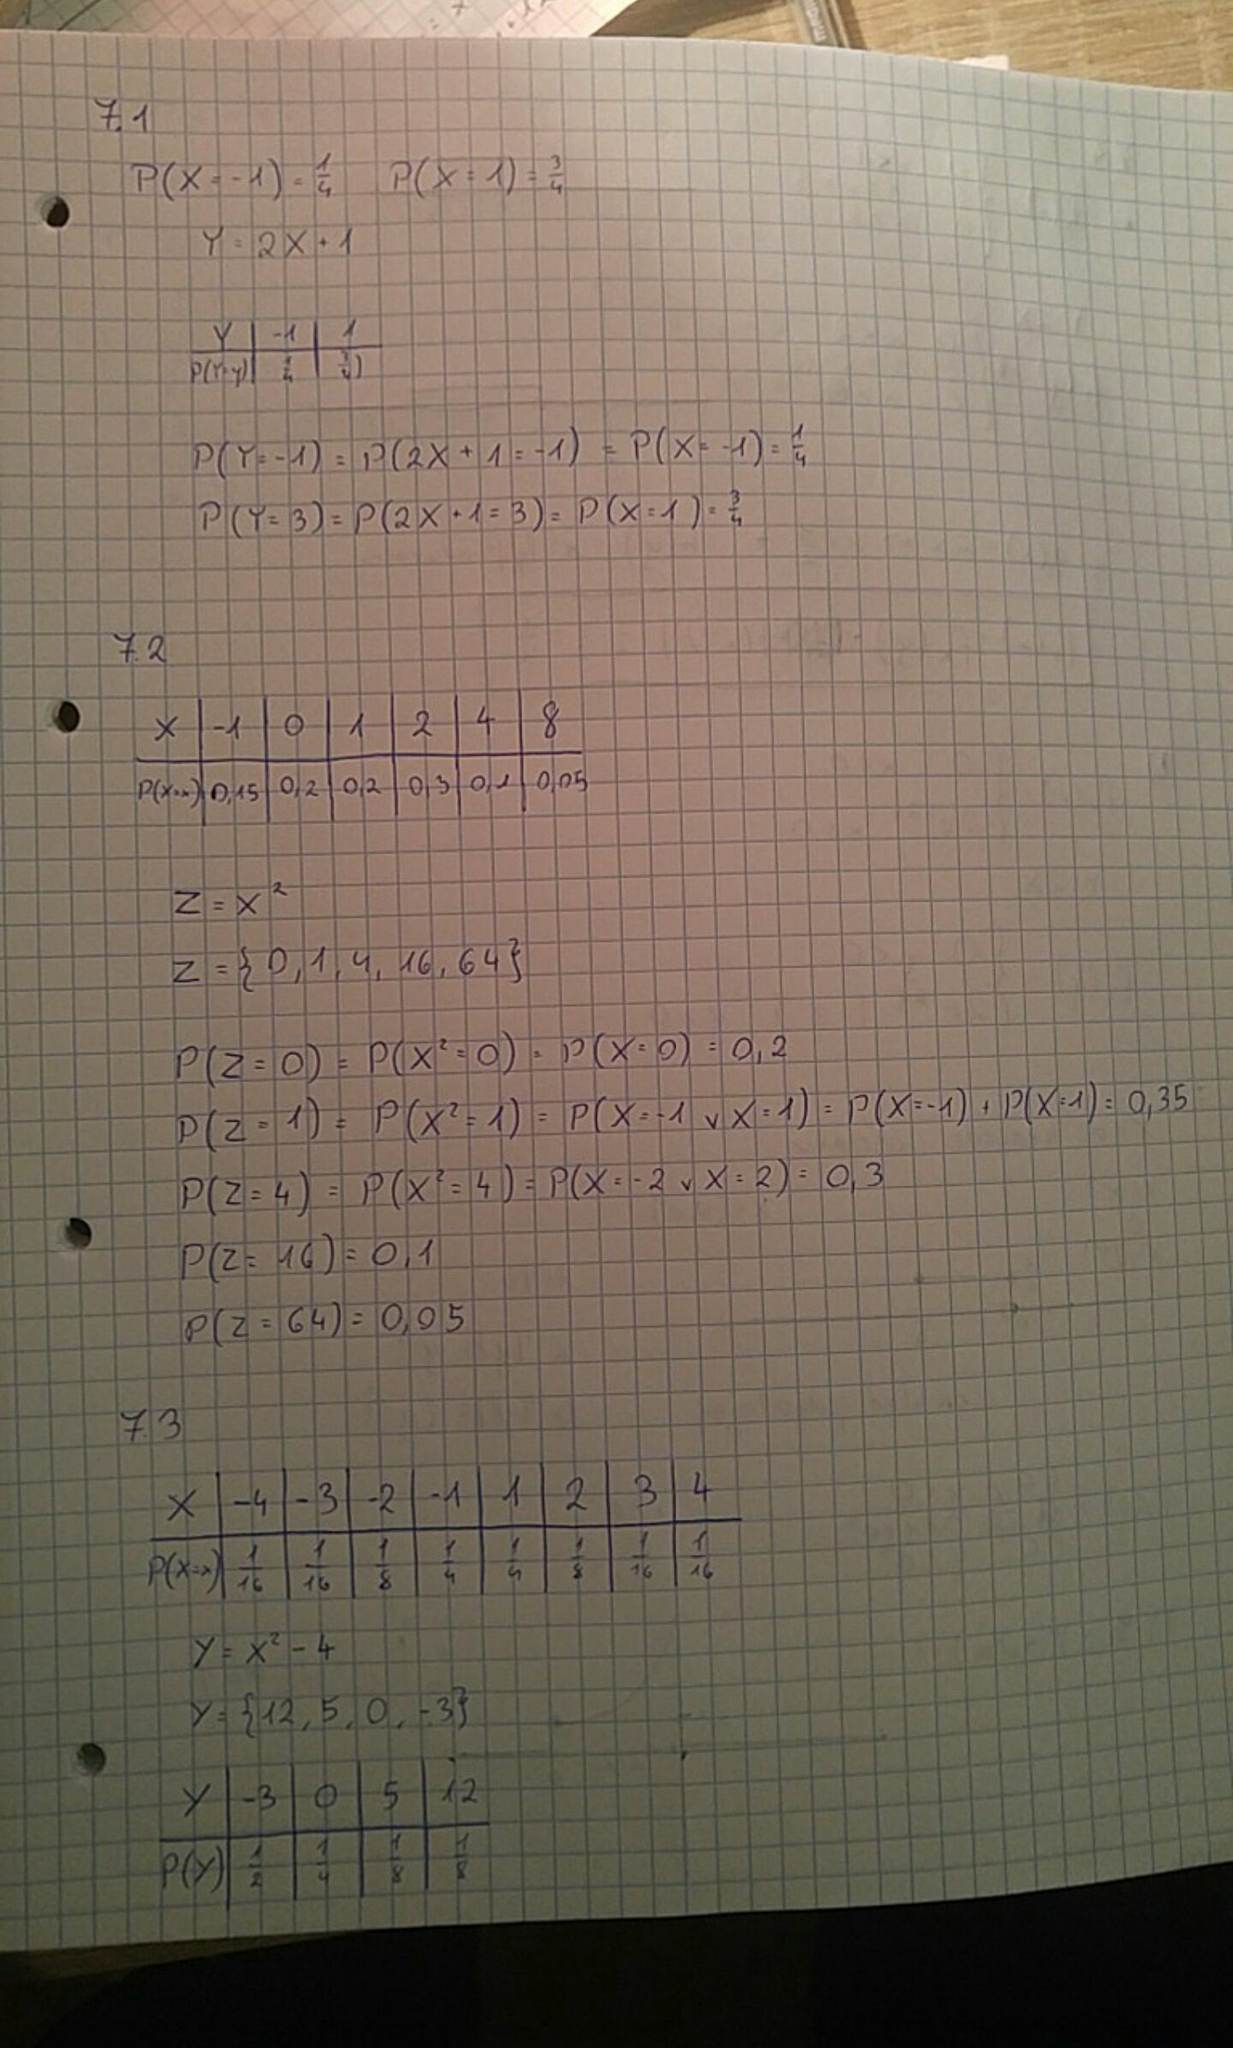 7.1
P(X=-1)=1/4 P(X=1)=3/4
Y=2X+1
Y | -1 | 1
P(Y=y) | 1/4 | 3/4
P(Y=-1)=P(2X+1=-1)=P(X=-1)=1/4
P(Y=3)=P(2X+1=3)=P(X=1)=3/4
7.2
X | -1 | 0 | 1 | 2 | 4 | 8
P(X=x) | 0,15 | 0,2 | 0,2 | 0,3 | 0,1 | 0,05
Z=X²
Z={0,1,4,16,64}
P(Z=0)=P(X²=0)=P(X=0)=0,2
P(Z=1)=P(X²=1)=P(X=-1 ∨ X=1)=P(X=-1)+P(X=1)=0,35
P(Z=4)=P(X²=4)=P(X=-2 ∨ X=2)=0,3
P(Z=16)=0,1
P(Z=64)=0,05
7.3
X | -4 | -3 | -2 | -1 | 1 | 2 | 3 | 4
P(X=x) | 1/16 | 1/16 | 1/8 | 1/4 | 1/4 | 1/8 | 1/16 | 1/16
Y=X²-4
Y={12,5,0,-3}
Y | -3 | 0 | 5 | 12
P(Y) | 1/2 | 1/4 | 1/8 | 1/8